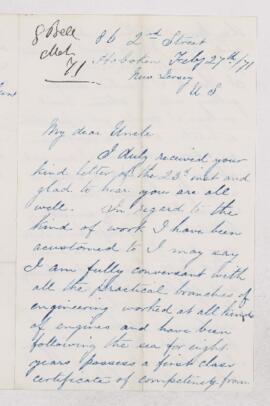 J Bell
Mch
71
86 2nd Street
Hoboken Feby 27th/71
New Jersey
U S
My dear Uncle
I duly received your
kind letter of the 23d inst and
glad to hear you are all
well. In regard to the
kind of work I have been
acustomed to I may say
I am fully conversant with
all the practical branches of
engineering worked at all kind
of engines and have been
following the sea for eight
years possess a first class
certificate of competency from